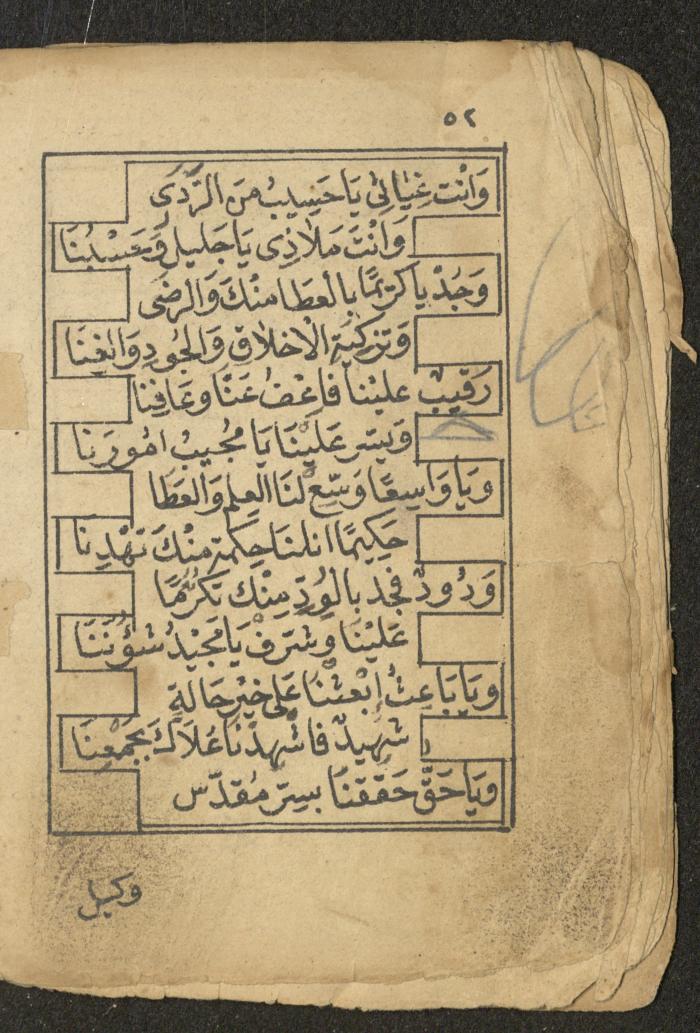 ٥٢
وَانْتَ غِيَاثِي يَا حَسِيبُ مِنَ الرَّدَى
وَانْتَ مَلَاذِى يَا جَلِيل وَحَسْبُنَا
وَجُدْ يا كَرِيمًا بِالْعَطَا مِنْكَ وَالرِضَى
وَتَزْكِيَةِ الْاَخْلَاقِ وَالْجُودِ وَالْغِنَا
رَقِيبْ عَلَيْنَا فَاعْفُ عَنَّا وَعَافِنَا
وَيَسِّرْ عَلَيْنَا يَا مُجِيبُ امُورَنَا
وَيَا وَاسِعًا وَسِّعْ لَنَا الْعِلْمَ وَالْعَطَا
حَكِيمًا انلنَا حِكْمَةً مِنْكَ تَهْدِنَا
وَدُودٌ فَجُدْ بِالْوُدِّ مِنْكَ تَكَرُّمًا
عَلَيْنَا وَشَرِّفْ يَا مَجِيدُ شُؤُنَنَا
وَيَا بَاعِثُ اِبْعَثْنَا عَلَى خَيْرِ حَالَةٍ
شَهِيدٌ فَاشْهِدْنَا عُلَاكَ بِجَمْعِنَا
وَيَا حَقُّ حَقِّقْنَا بِسِرٍّ مُقَدَّسٍ
وكيل